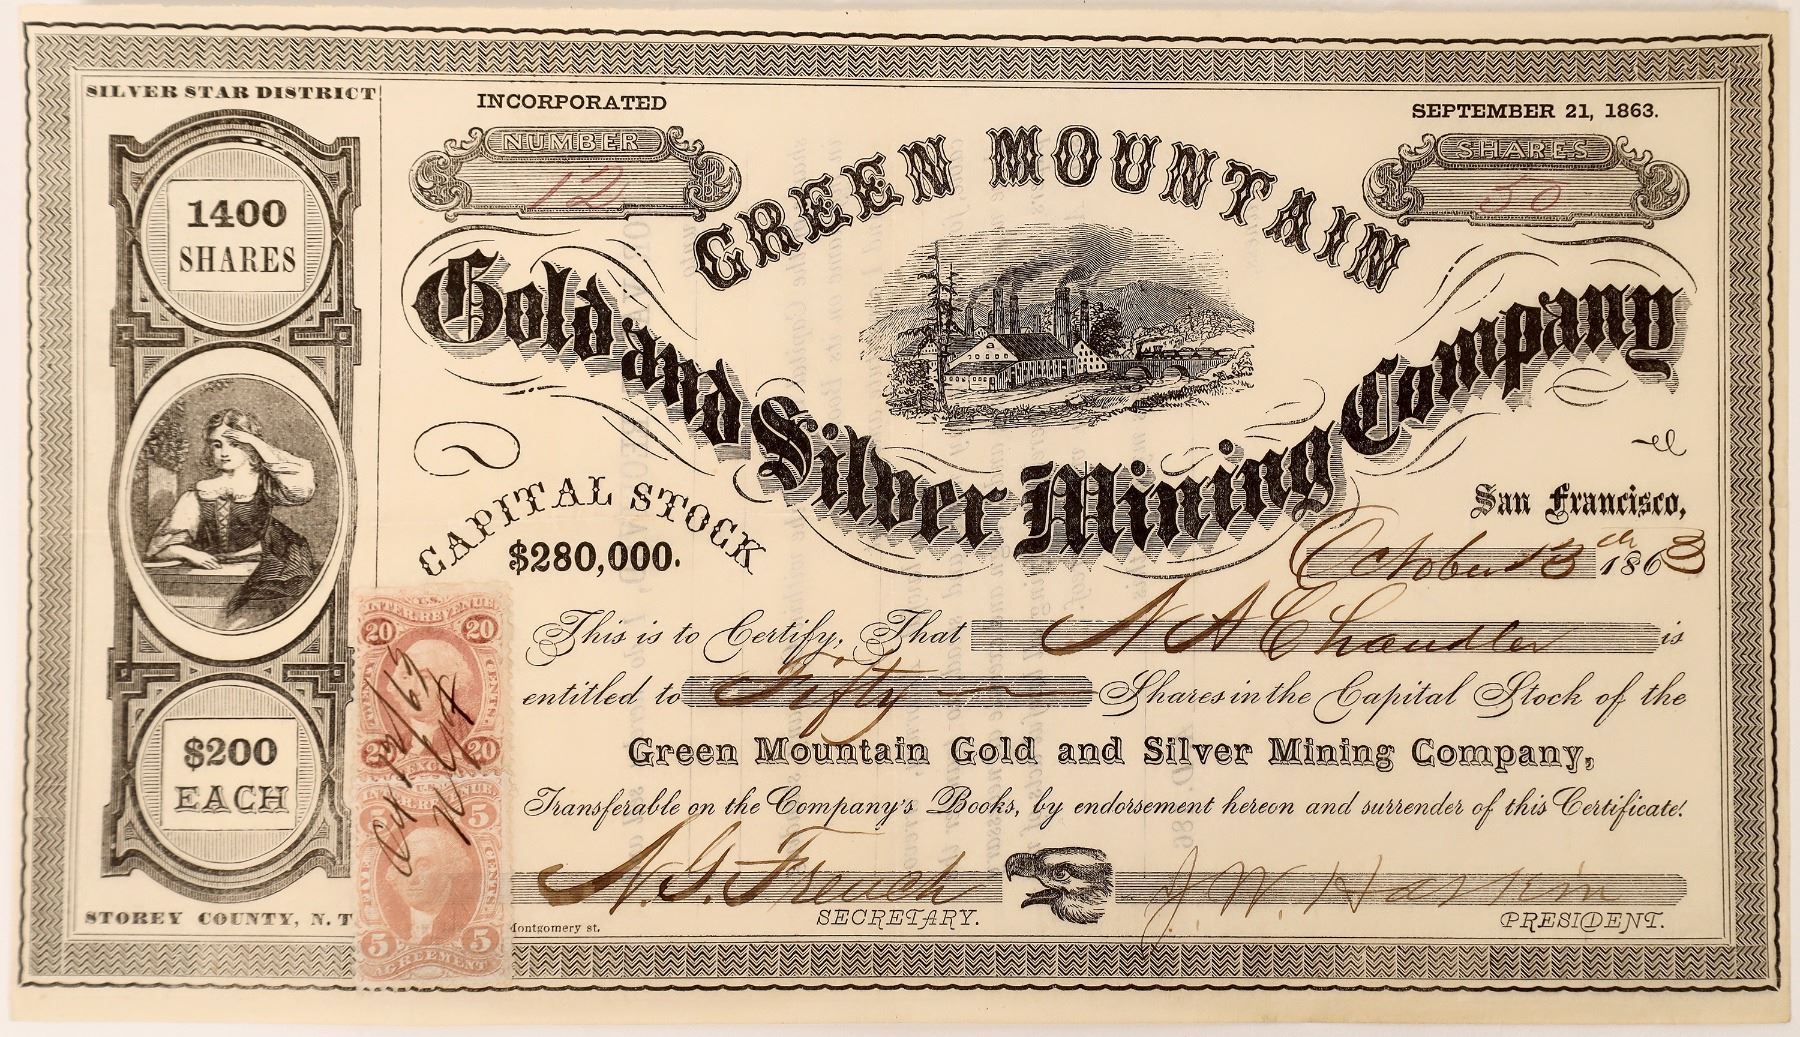 SILVER STAR DISTRICT
1400
SHARES
$200
EACH
STOREY COUNTY, N. T
INCORPORATED
SEPTEMBER 21, 1863.
NUMBER
12
SHARES
50
GREEN MOUNTAIN
Gold and Silver Mining Company
CAPITAL STOCK
$280,000.
San Francisco,
October 13th 1863
This is to Certify, That N A Chandler is
entitled to Fifty Shares in the Capital Stock of the
Green Mountain Gold and Silver Mining Company,
Transferable on the Company's Books, by endorsement hereon and surrender of this Certificate!
N. G. French
SECRETARY.
J. W. Harkin
PRESIDENT.
Montgomery st.
U.S.
INTER. REVENUE
20 20
TWENTY CENTS.
20 20
INTER. REVENUE
5 5
FIVE CENTS.
5 5
AGREEMENT